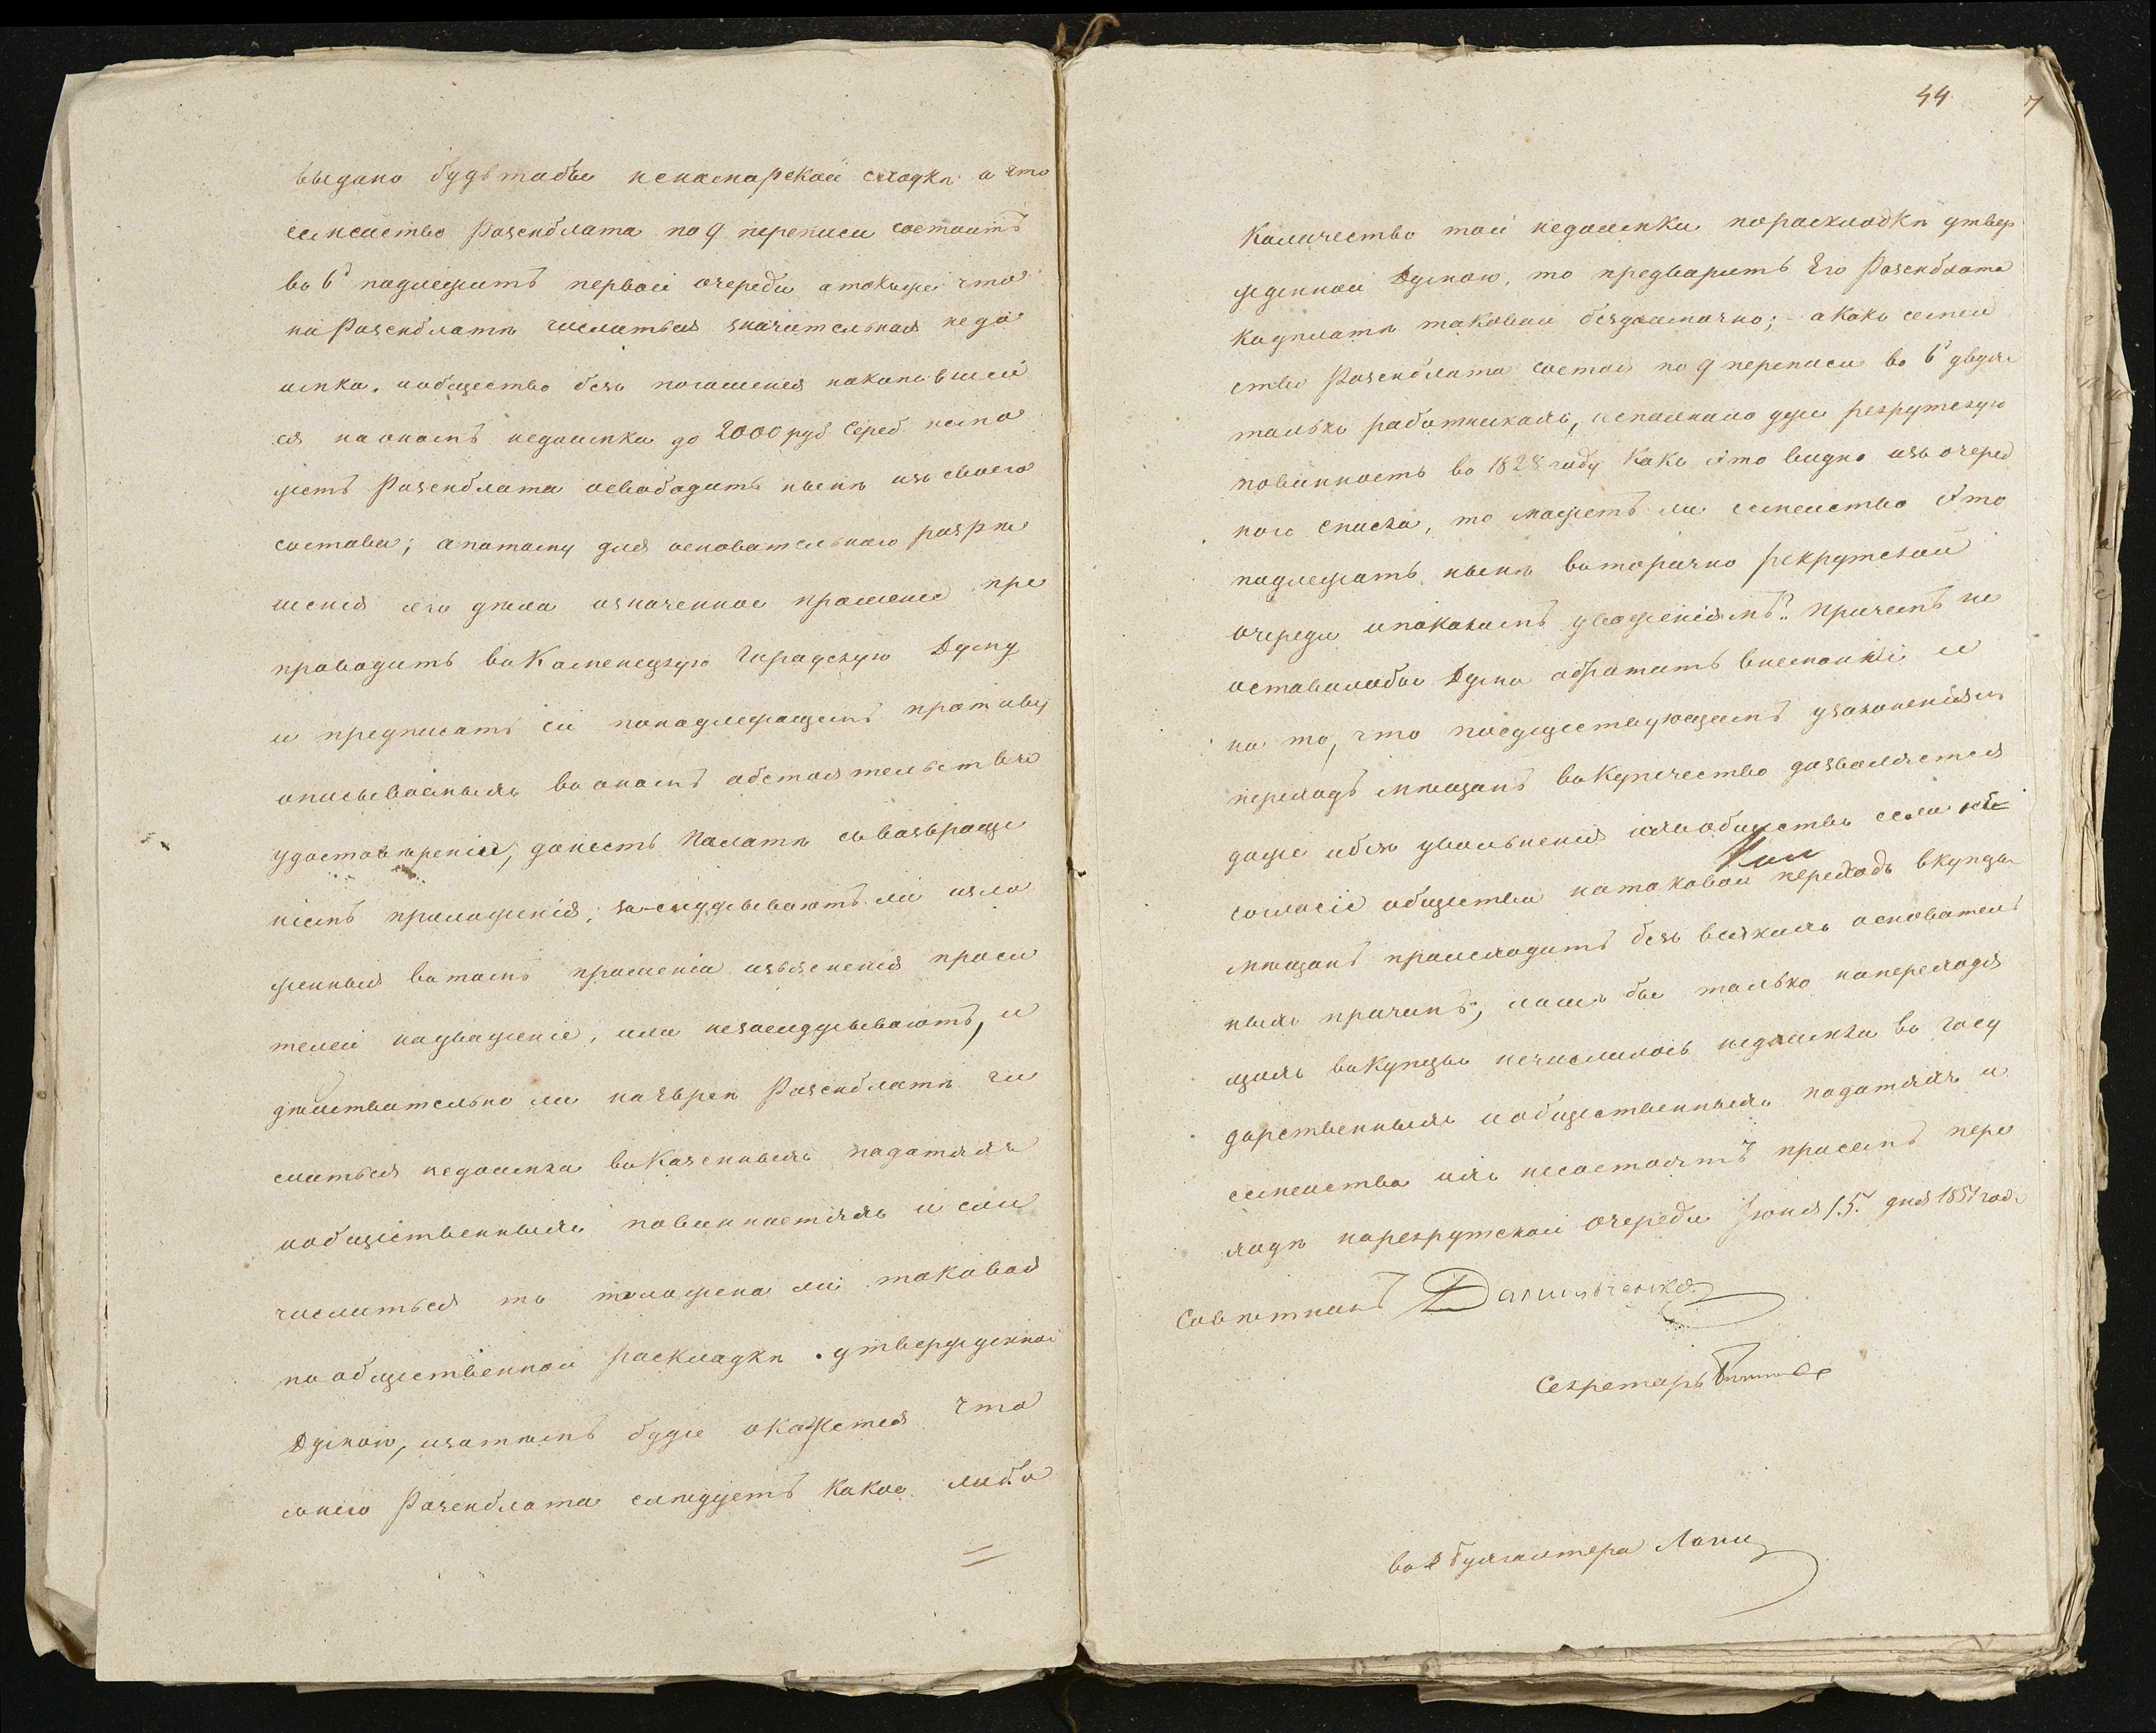 выдано будьтобы некатарскай сходки а что
семейство Розенблата по 9 переписи состоитъ
во 6ᵈ подлежитъ первой очереди а также что
на Розенблатѣ числиться значительная недо
имка. и общество безъ погашенія накопившей
ся на ономъ недоимки до 2000 руб серeб неmo
жетъ Розенблата освободить нынѣ изъ своего
состава; а потому для основательного разрѣ
шенія его дѣла означенное прошеніе пре
проводить въ Каменецкую Городскую Думу
и предписать ей по надлежащемъ противу
описываемыхъ во ономъ обстоятельствъ
удостовѣреніи, донесть Палатѣ съ возвраще
ніемъ приложенія; заслуживаютъ ли изло
женныя въ томъ прошеніи изъясненія проси
телей на уваженіе, или незаслуживаютъ, и
дѣйствительно ли на Евреѣ Розенблатѣ чи
слиться недоимка въ казенныхъ податяхъ
и общественныхъ повинностяхъ и если
числиться то положена ли таковая
по общественной раскладкѣ утвержденной
Думою, и затѣмъ буде окажется что
съ него Розенблата слѣдуетъ какое либо
44 7
Количество той недоимки по раскладкѣ утвер
жденной Думою, то предварить Его Розенблата
къ уплатѣ таковой бездоимочно; а какъ семей
ство Розенблата состоя по 9 переписи во 6ᵈ двумя
только работниками, исполнило уже рекрутскую
повинность во 1828 году какъ это видно изъ очеред
ного списка, то можетъ ли семейство это
подлежать нынѣ вторично рекрутской
очереди и покакимъ уваженіямъ? причемъ не
оставилобы Дума обратить вниманіе и
на то, что по существующимъ узаконеніямъ
переходъ мѣщанъ въ купечество дозволяется
даже и безъ увольненія изъ общества если не
согласіе общества на таковой переходъ въ купцы
мѣщанъ происходитъ безъ всякихъ основатель
ныхъ причинъ, лишь бы только на переходя
щихъ въ купцы нечислилось недоимки въ госу
дарственныхъ и общественныхъ податяхъ и
семейства ихъ несостоятъ при семъ пере
ходѣ на рекрутской очереди Іюня 15. дня 1851 года
Совѣтникъ Данильченко
Секретарь
въ д бухгалтера